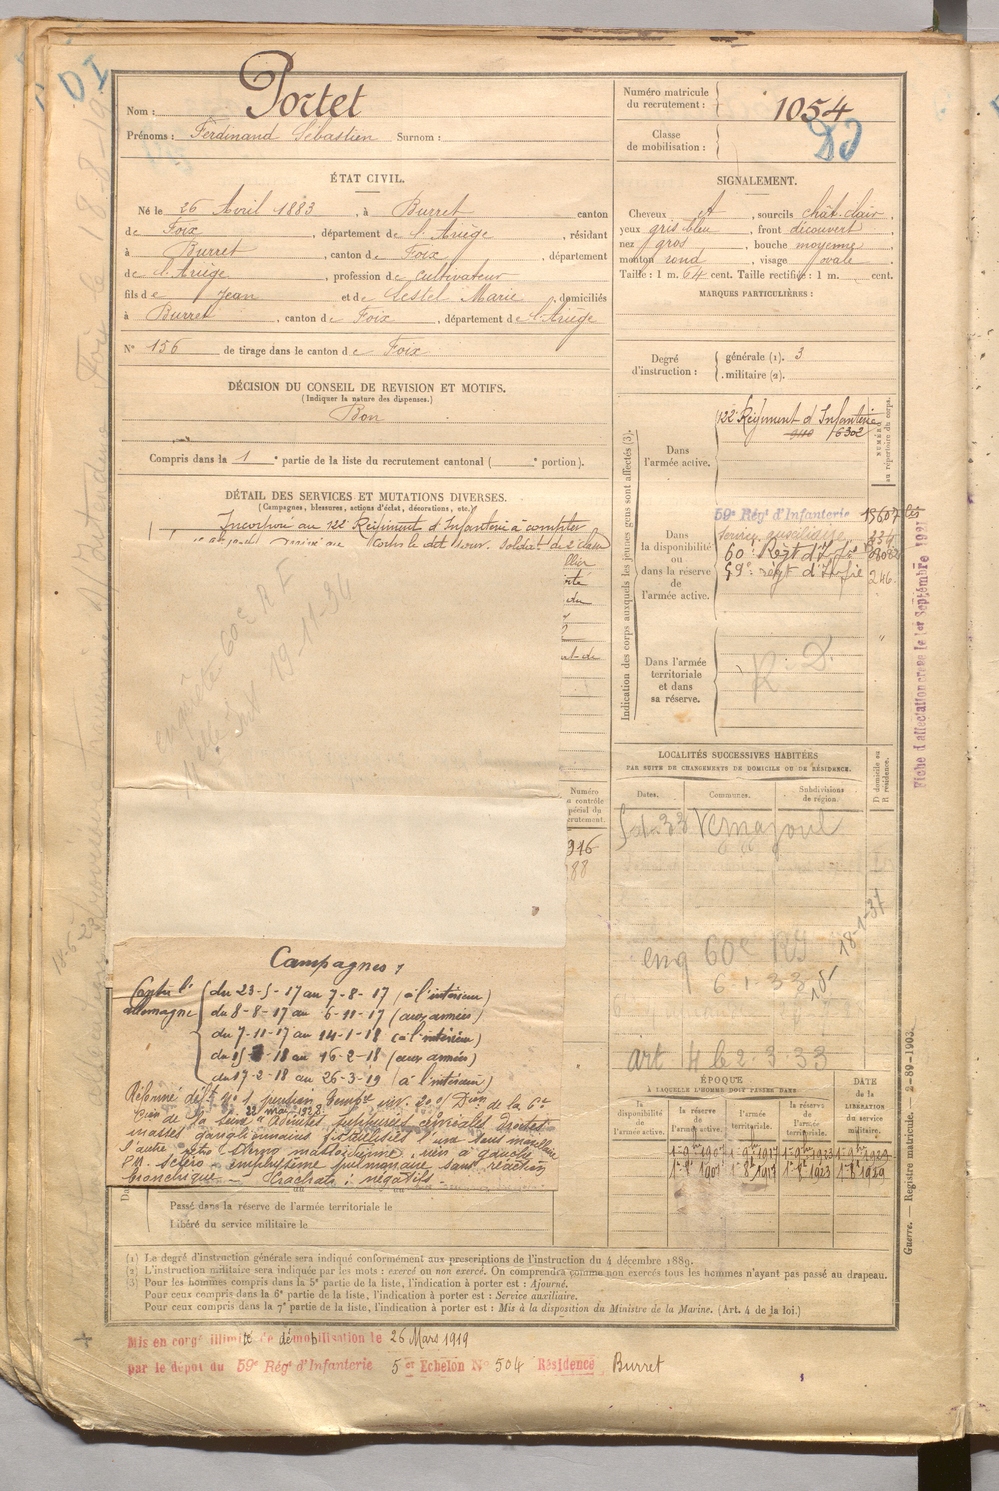 Nom : Portet
Prénoms : Ferdinand Sébastien Surnom :
ÉTAT CIVIL.
Né le 26 Avril 1883, à Burret canton
de Foix, département de l'Ariège, résidant
à Burret, canton de Foix, département
de l'Ariège, profession de cultivateur
fils de Jean et de Sestel Marie, domiciliés
à Burret, canton de Foix, département de l'Ariège
N° 156 de tirage dans le canton de Foix
DÉCISION DU CONSEIL DE REVISION ET MOTIFS.
(Indiquer la nature des dispenses.)
Bon
Compris dans la 1e partie de la liste du recrutement cantonal ( e portion).
DÉTAIL DES SERVICES ET MUTATIONS DIVERSES.
(Campagnes, blessures, actions d'éclat, décorations, etc.)
Incorporé au 122e Régiment d'Infanterie à compter
soldat de 2e classe
enquête 60e R I
19-11-34
Numéro
au contrôle
spécial du
recrutement.
946
88
Campagnes
Contre l'Allemagne
du 23-5-17 au 7-8-17 (à l'intérieur)
du 8-8-17 au 6-11-17 (aux armées)
du 7-11-17 au 14-1-18 (à l'intérieur)
-18 au 16-2-18 (aux armées)
du 17-2-18 au 26-3-19 (à l'intérieur)
Réformé déf. n° 1 pension temp. inv. 20% Don de la 6e
Cion de la Seine 22 mai 1928 Adénites suppurées cervicales droites
masses ganglionnaires fistulisées l'une sous maxillaire
l'autre rétro sterno mastoïdienne, rien à gauche
P.M. Scléro-emphysème pulmonaire sans réaction
bronchique - Crachats : négatifs.
Passé dans la réserve de l'armée territoriale le
Libéré du service militaire le
Numéro matricule
du recrutement : 1054
Classe
de mobilisation :
SIGNALEMENT.
Cheveux et, sourcils chât. clair.
yeux gris bleu, front découvert
nez gros, bouche moyenne
menton rond, visage ovale.
Taille : 1 m. 64 cent. Taille rectifiée : 1 m. cent.
MARQUES PARTICULIÈRES :
Degré
d'instruction :
générale (1). 3
militaire (2).
Indication des corps auxquels les jeunes gens sont affectés (3).
NUMÉRO
au répertoire du corps.
Dans
l'armée active.
122e Régiment d'Infanterie
6302
Dans
la disponibilité
ou
dans la réserve
de
l'armée active.
59e Régt d'Infanterie
60e Regt d'Inf
59e regt d'Infie 246.
Dans l'armée
territoriale
et dans
sa réserve.
R. D.
Fiche d'affectation créée le 1er Septembre 1921
LOCALITÉS SUCCESSIVES HABITÉES
PAR SUITE DE CHANGEMENTS DE DOMICILE OU DE RÉSIDENCE.
D domicile au
R résidence.
Dates. Communes. Subdivisions
de région.
Vernajoul
enq 60e RI
6-1-33
18-1-37
art 4 b 2-3-33
ÉPOQUE
À LAQUELLE L'HOMME DOIT PASSER DANS
DATE
DE LA
LIBÉRATION
DU
service
militaire.
la
disponibilité
de
l'armée active.
la réserve
de
l'armée active.
l'armée
territoriale.
la
réserve de
l'armée
territoriale.
Guerre. — Registre matricule. — 2-89-1903.
(1) Le degré d'instruction générale sera indiqué conformément aux prescriptions de l'instruction du 4 décembre 1889.
(2) L'instruction militaire sera indiquée par les mots : exercé ou non exercé. On comprendra comme non exercés tous les hommes n'ayant pas passé au drapeau.
(3) Pour les hommes compris dans la 5e partie de la liste, l'indication à porter est : Ajourné.
Pour ceux compris dans la 6e partie de la liste, l'indication à porter est : Service auxiliaire.
Pour ceux compris dans la 7e partie de la liste, l'indication à porter est : Mis à la disposition du Ministre de la Marine. (Art. 4 de la loi.)
Mis en congé illimité de démobilisation le 26 Mars 1919
par le dépôt du 59e Régt d'Infanterie 5e Echelon N° 504 Résidence Burret